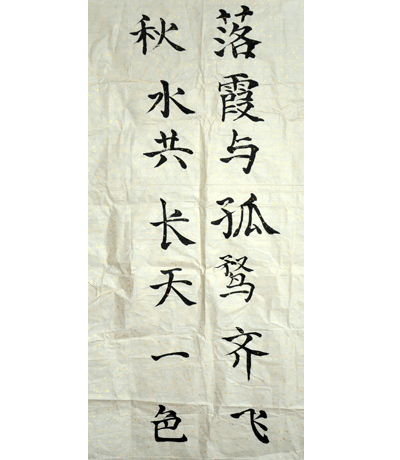 落霞与孤鹜齐飞
秋水共长天一色